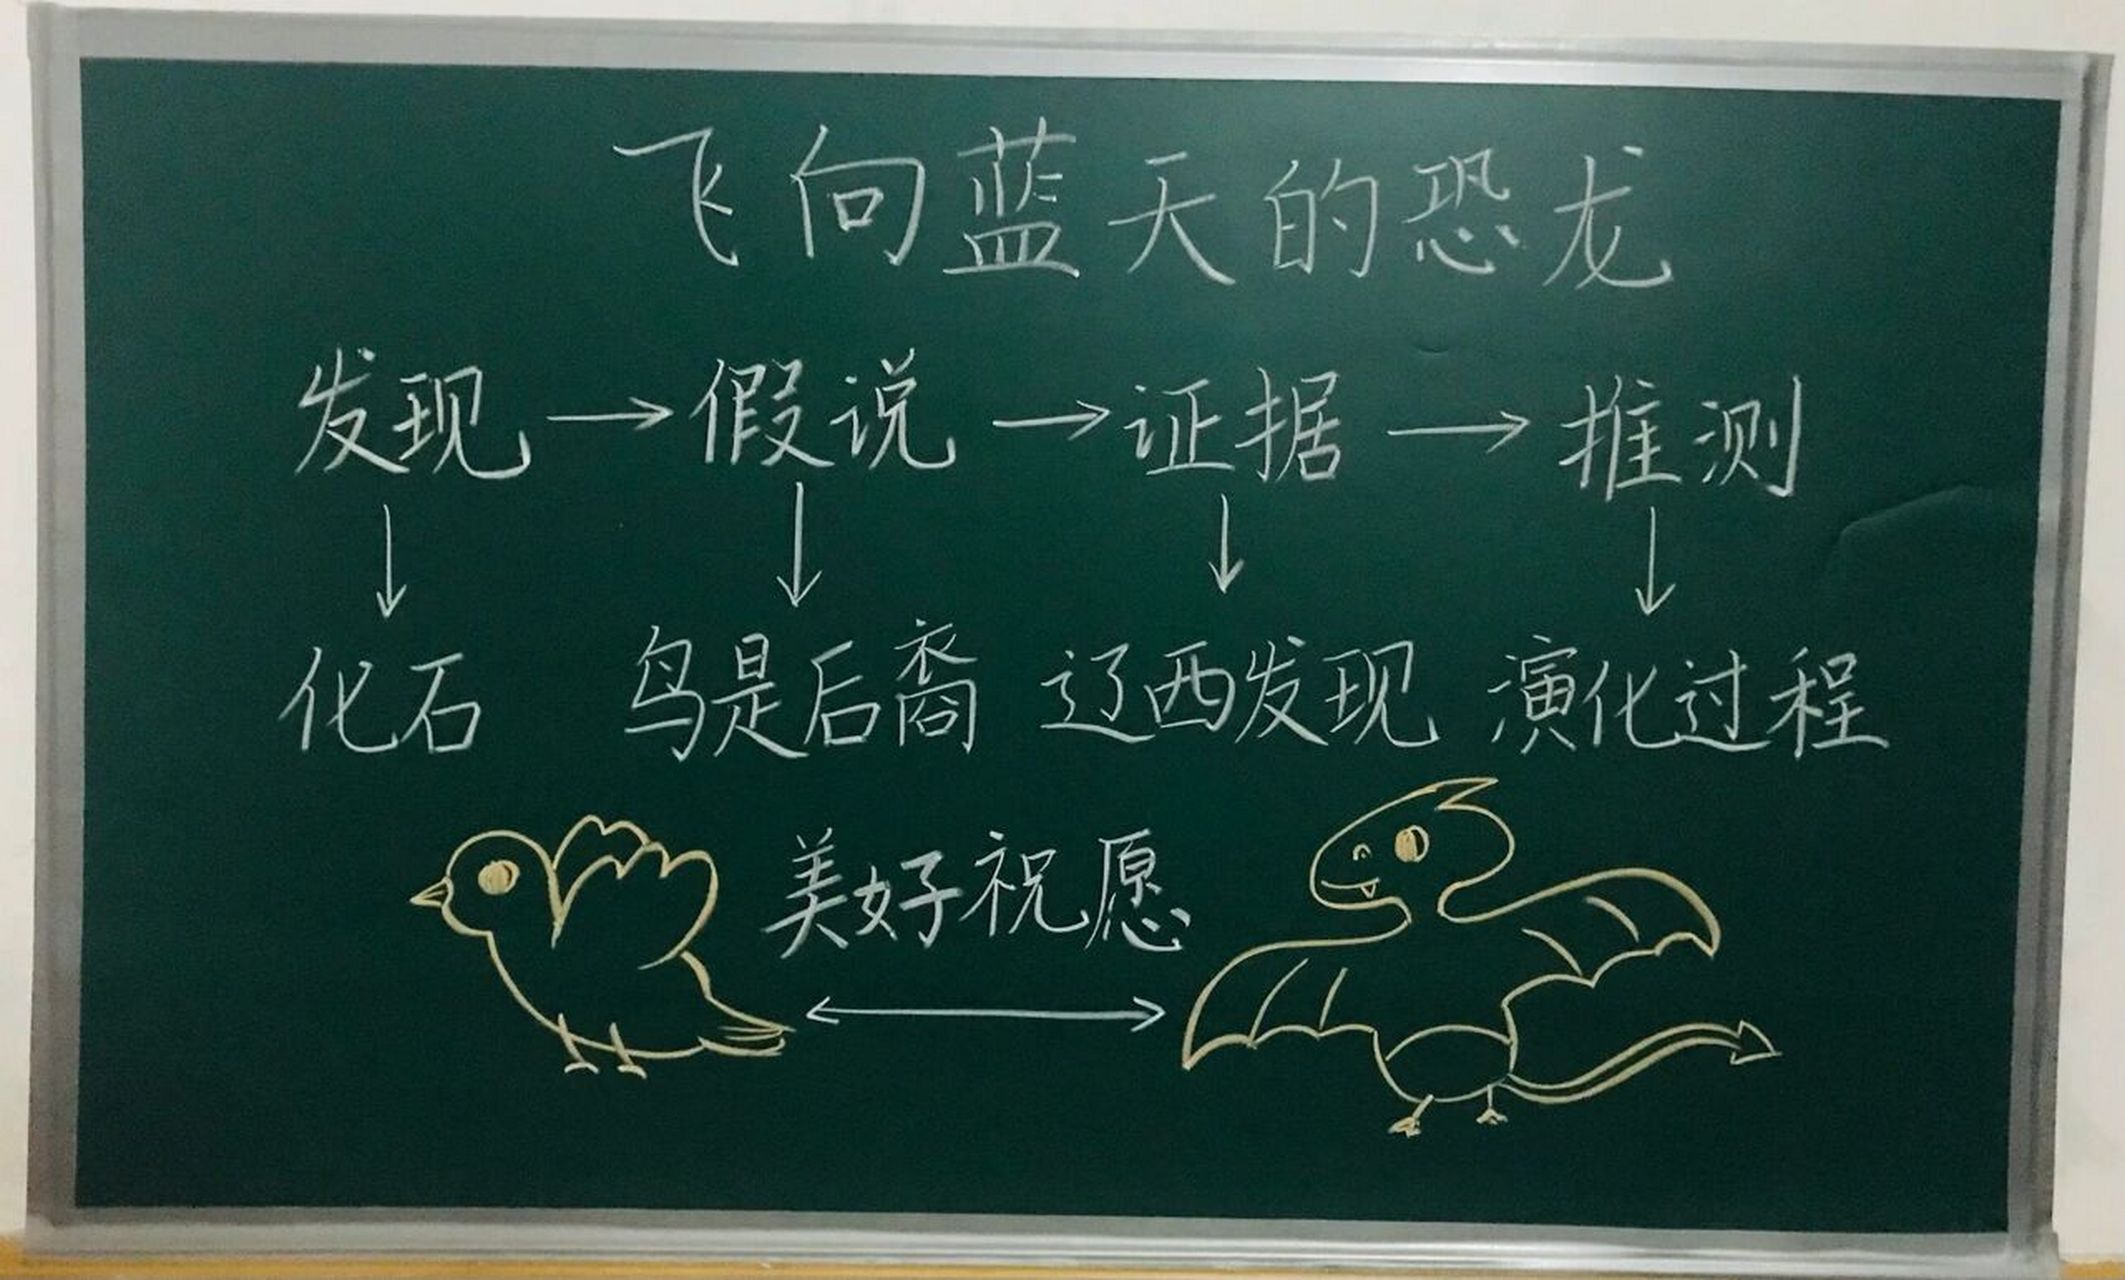 飞向蓝天的恐龙
发现→假说→证据→推测
↓ ↓ ↓ ↓
化石 鸟是后裔 辽西发现 演化过程
美好祝愿